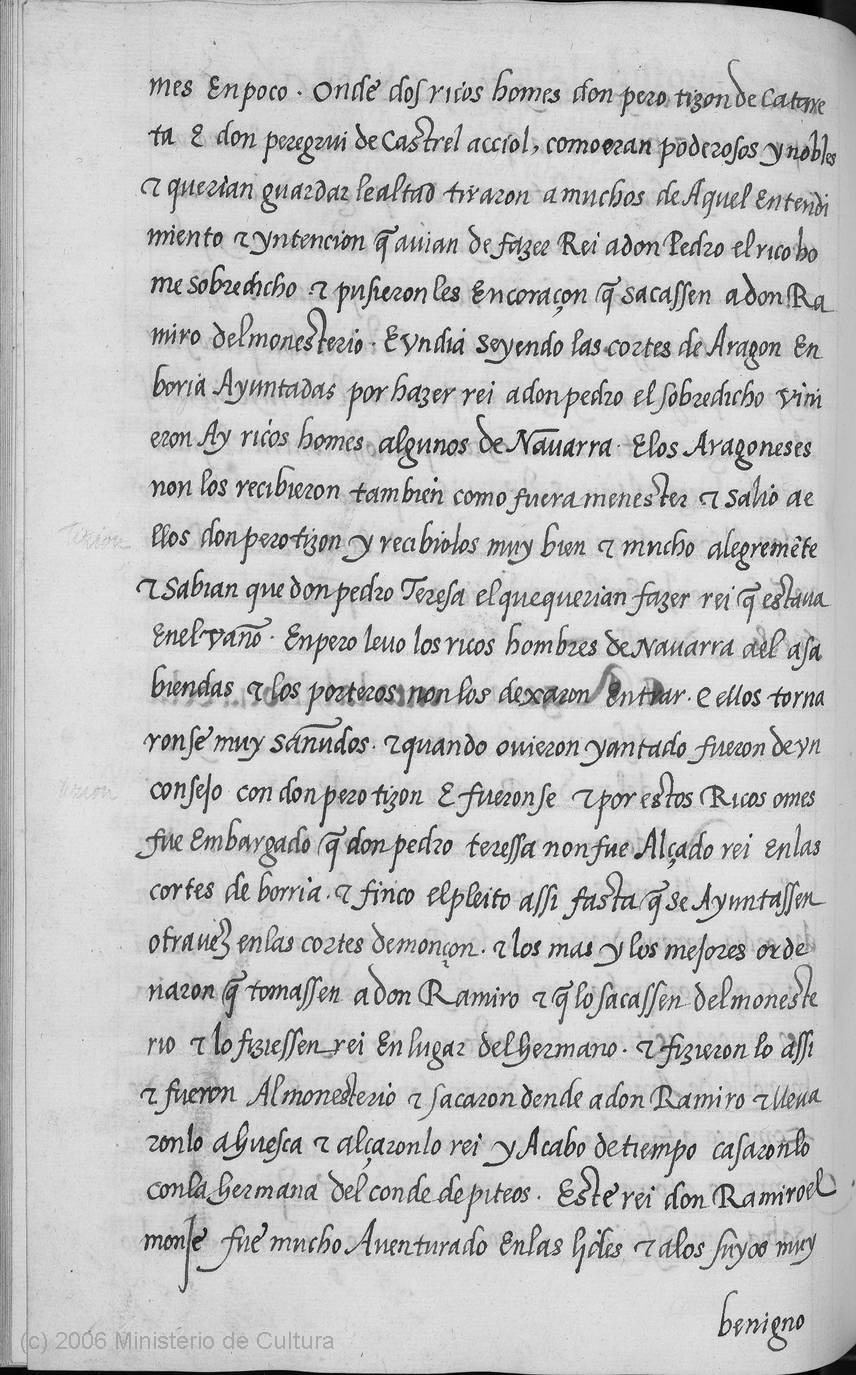 mes Enpoco · Onde dos ricos homes don pero tizon de Catarre
ta E don peregrui de Castrel acciol, como eran poderosos y nobles
⁊ querian guardar lealtad tiraron a muchos de Aquel Entendi
miento ⁊ yntencion q̃ avian de fazer Rei a don Pedro el rico ho
me sobredicho ⁊ pusieron les En coraçon q̃ sacassen a don Ra
miro del monesterio · E vn dia seyendo las cortes de Aragon En
boria Ayuntadas por hazer rei a don pedro el sobredicho vini
eron Ay ricos homes algunos de Nauarra · E los Aragoneses
non los recibieron tambien como fuera menester ⁊ salio a e
llos don pero tizon y recibiolos muy bien ⁊ mucho alegremẽte
⁊ Sabian que don pedro Teresa el que querian fazer rei q̃ estaua
En el vaño · Enpero leuo los ricos hombres de Nauarra a el a sa
biendas ⁊ los porteros non los dexaron Entrar · E ellos torna
ronse muy sañudos · ⁊ quando ovieron yantado fueron de vn
consejo con don pero tizon E fueronse ⁊ por estos Ricos omes
fue Embargado q̃ don pedro teressa non fue Alçado rei En las
cortes de borria · ⁊ finco el pleito assi fasta q̃ se Ayuntassen
otra uez en las cortes de monçon · ⁊ los mas y los mejores orde
naron q̃ tomassen a don Ramiro ⁊ q̃ lo sacassen del moneste
rio ⁊ lo fiziessen rei En lugar del hermano · ⁊ fizieron lo assi
⁊ fueron Al monesterio ⁊ sacaron dende a don Ramiro ⁊ lleua
ronlo a huesca ⁊ alçaronlo rei y Acabo de tiempo casaronlo
con la hermana del conde de piteos · Este rei don Ramiro el
monje fue mucho Auenturado En las lides ⁊ a los suyos muy
benigno
(c) 2006 Ministerio de Cultura